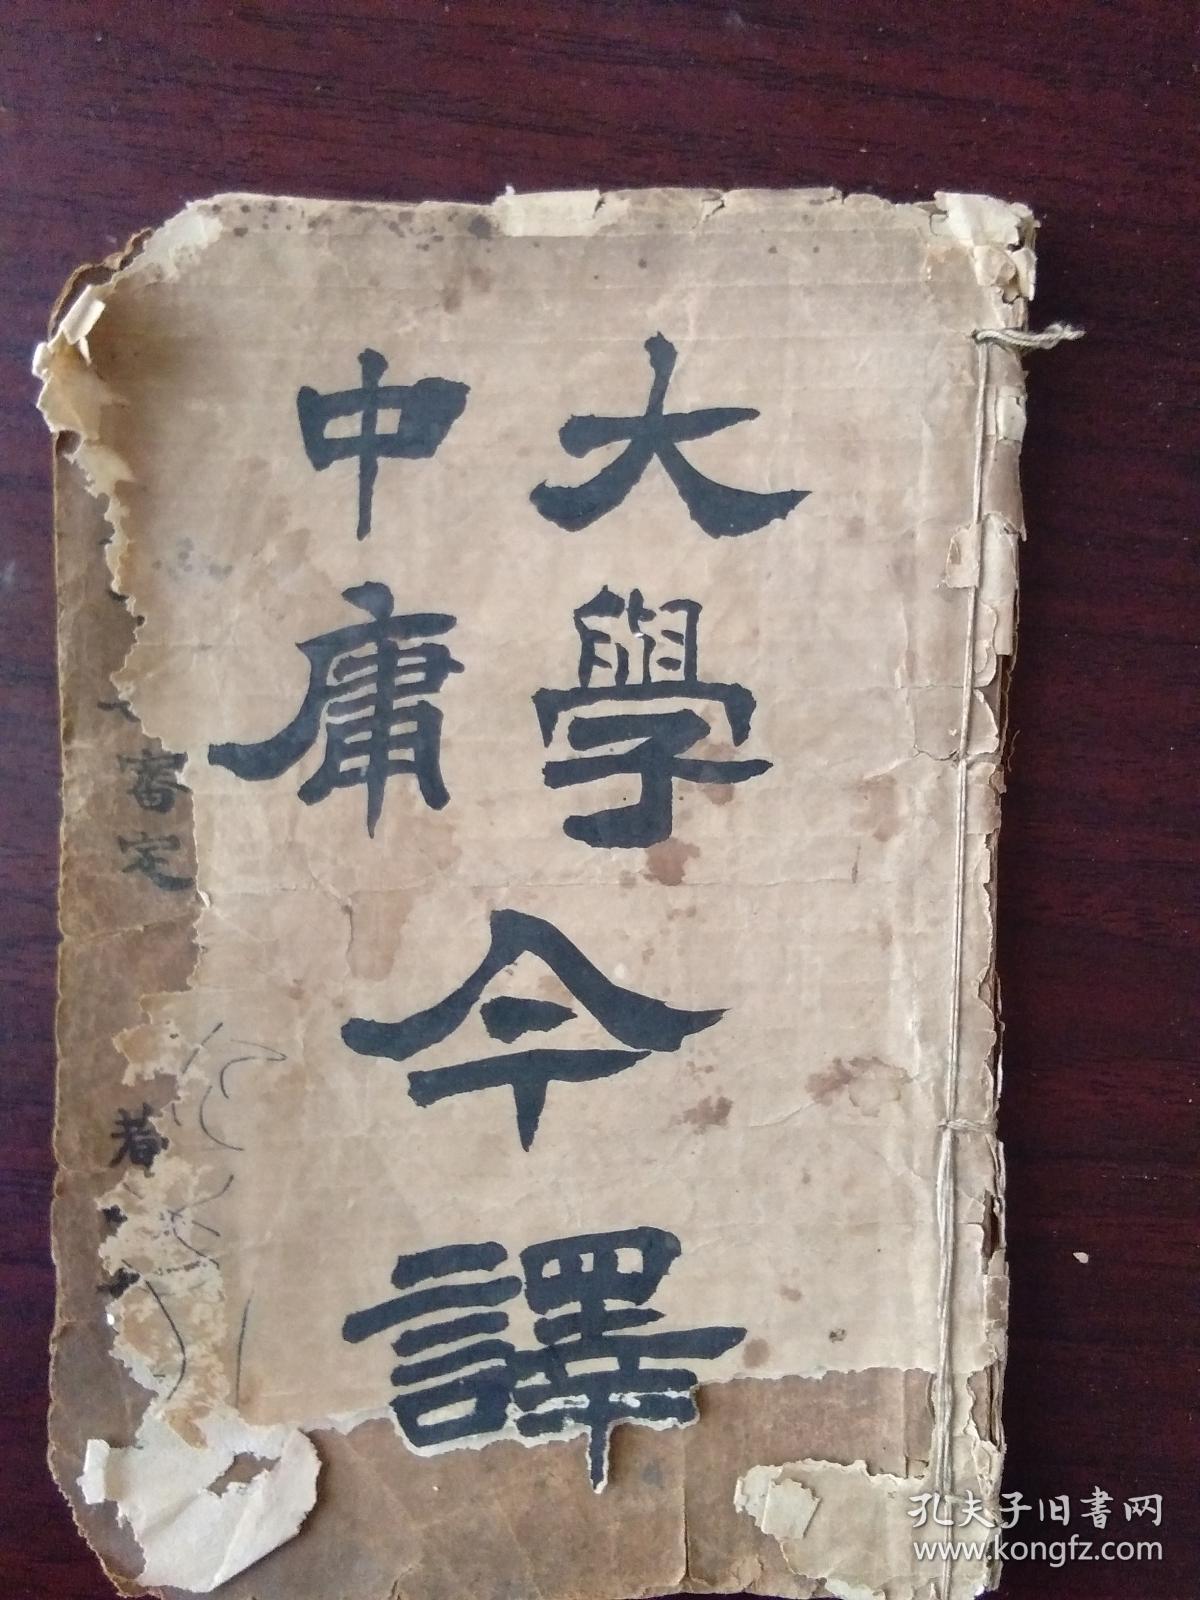 大學
中庸
今譯
審定
著
孔夫子旧书网
www.kongfz.com